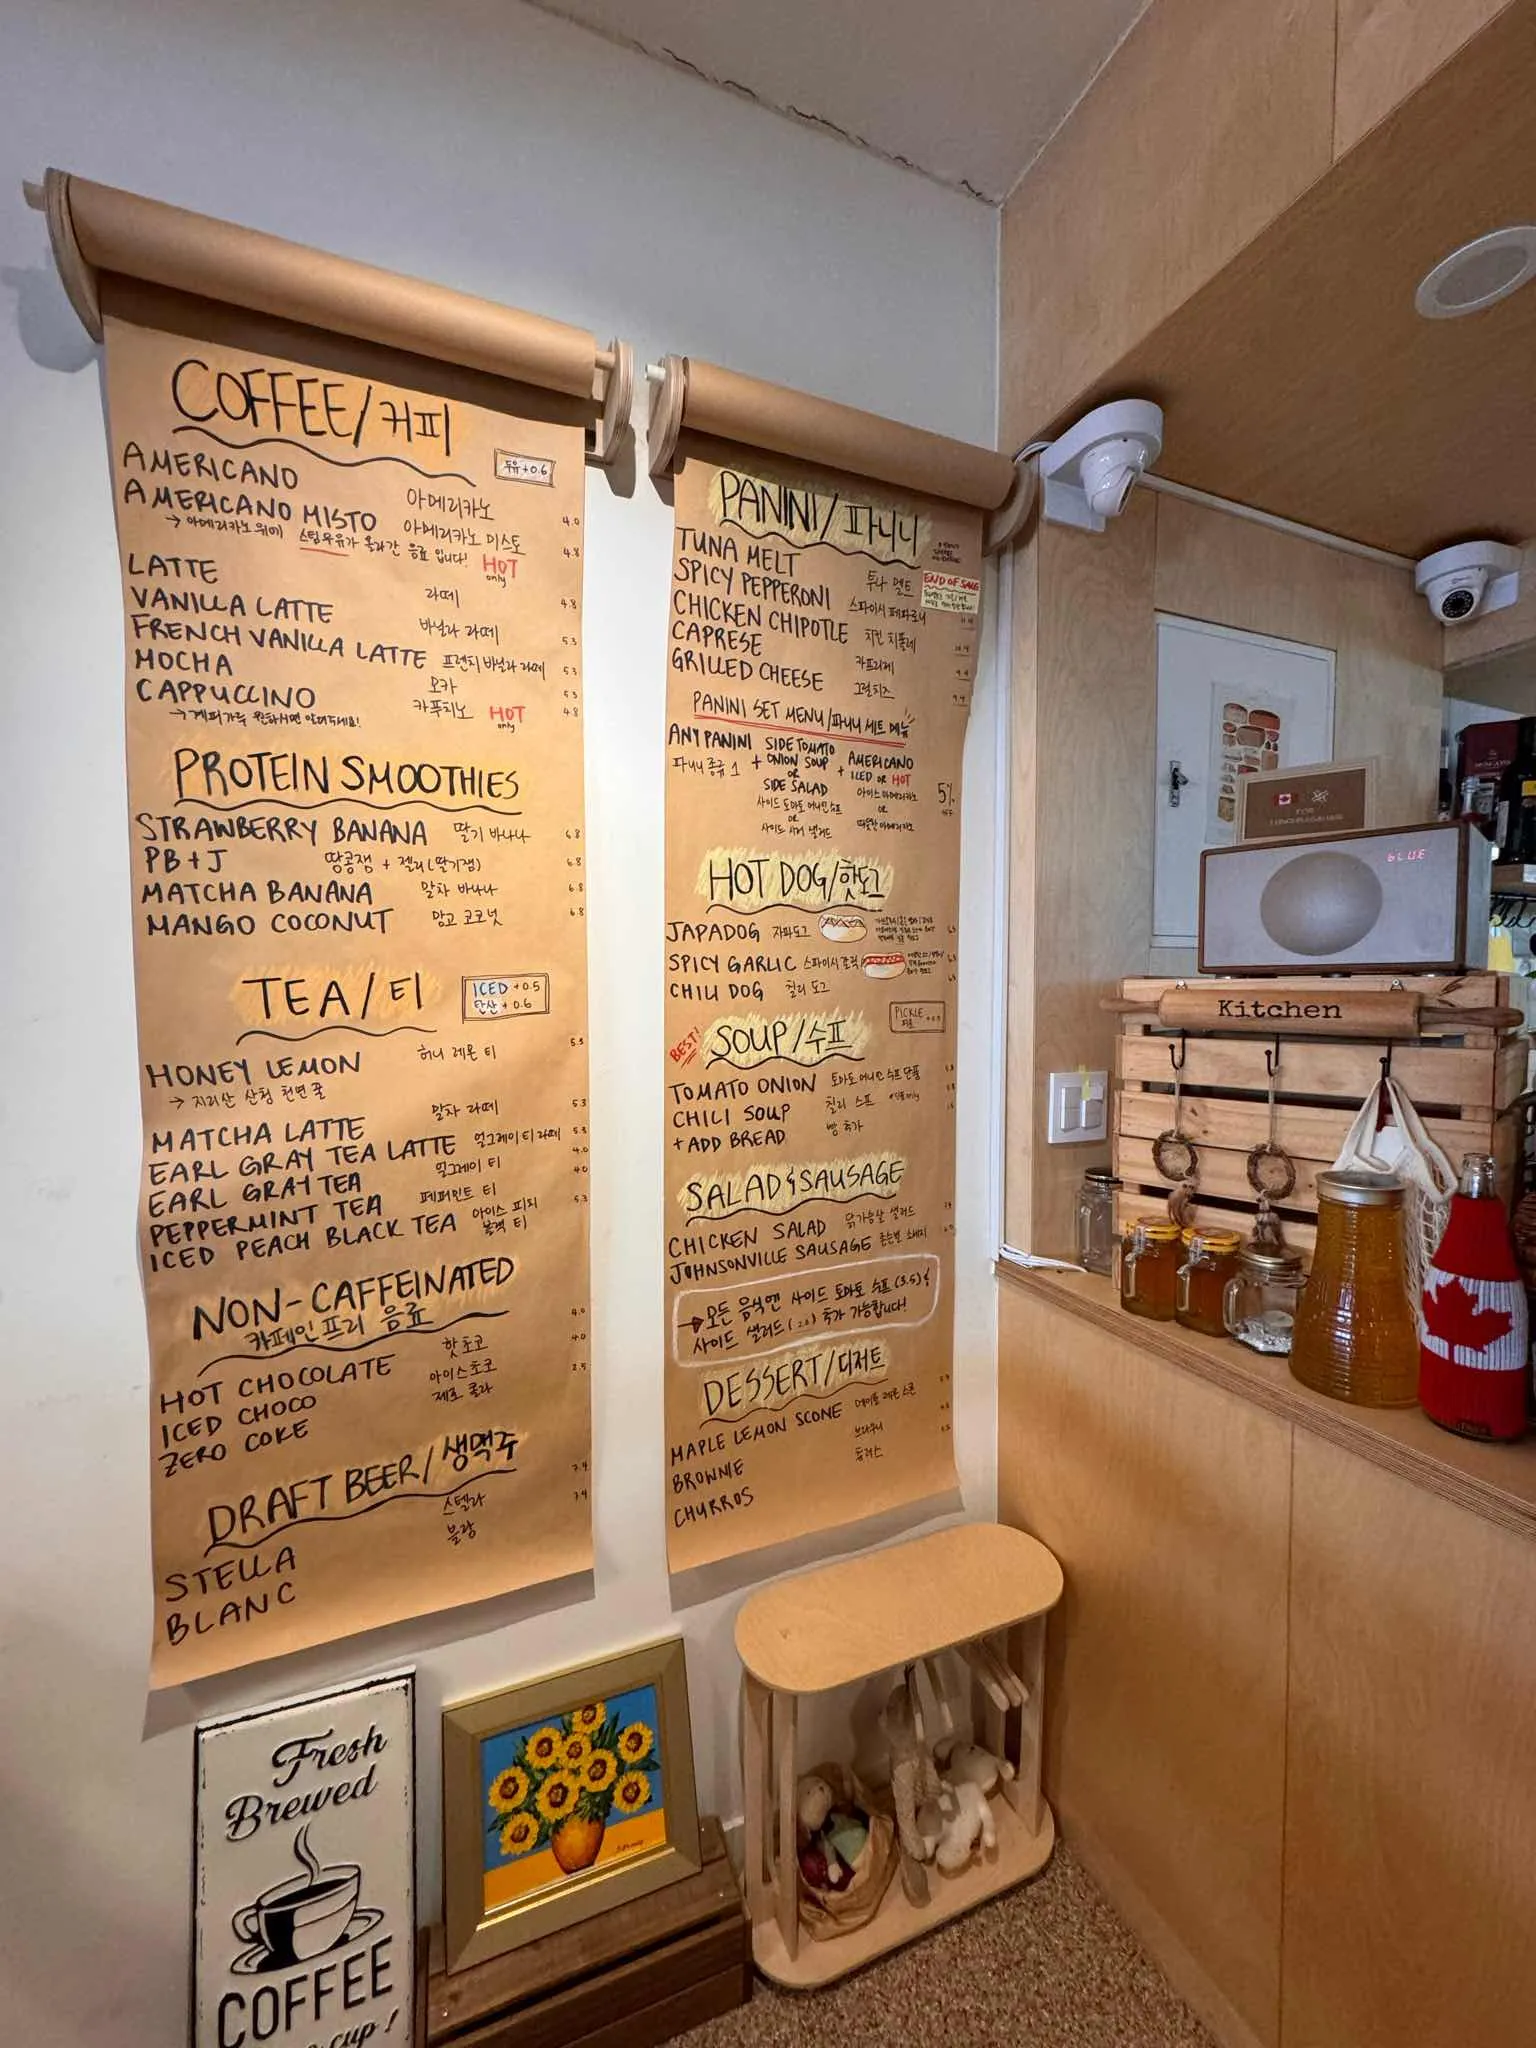 COFFEE/커피
두유 +0.6
AMERICANO 아메리카노 4.0
AMERICANO MISTO 아메리카노 미스토 4.8
→ 아메리카노 위에 스팀우유가 올라간 음료 입니다! HOT only
LATTE 라떼 4.8
VANILLA LATTE 바닐라 라떼 5.3
FRENCH VANILLA LATTE 프렌치 바닐라 라떼 5.3
MOCHA 모카 5.3
CAPPUCCINO 카푸치노 HOT only 4.8
→ 계피가루 원하시면 말해주세요!
PROTEIN SMOOTHIES
STRAWBERRY BANANA 딸기 바나나 6.8
PB+J 땅콩잼 + 젤리(딸기잼) 6.8
MATCHA BANANA 말차 바나나 6.8
MANGO COCONUT 망고 코코넛 6.8
TEA/티
ICED +0.5
탄산 +0.6
HONEY LEMON 허니 레몬 티 5.3
→ 지리산 산청 천연 꿀
MATCHA LATTE 말차 라떼 5.3
EARL GRAY TEA LATTE 얼그레이 티 라떼 5.8
EARL GRAY TEA 얼그레이 티 4.0
PEPPERMINT TEA 페퍼민트 티 4.0
ICED PEACH BLACK TEA 아이스 피치 블랙 티 5.3
NON-CAFFEINATED
카페인 프리 음료
HOT CHOCOLATE 핫초코 4.0
ICED CHOCO 아이스초코 4.0
ZERO COKE 제로 콜라 2.5
DRAFT BEER/생맥주
STELLA 스텔라 7.9
BLANC 블랑 7.9
PANINI/파니니
TUNA MELT 투나 멜트
END OF SALE
SPICY PEPPERONI 스파이시 페파로니
CHICKEN CHIPOTLE 치킨 치폴레
CAPRESE 카프리제 9.9
GRILLED CHEESE 그릴치즈 9.4
PANINI SET MENU/파니니 세트 메뉴
ANY PANINI + SIDE TOMATO ONION SOUP OR SIDE SALAD + AMERICANO ICED OR HOT
파니니 종류 1 사이드 토마토 어니언 수프 OR 사이드 샐러드 아이스 아메리카노 OR 따뜻한 아메리카노 5% OFF
HOT DOG/핫도그
JAPADOG 자파도그
SPICY GARLIC 스파이시 갈릭
CHILI DOG 칠리 도그
PICKLE
BEST!
SOUP/수프
TOMATO ONION 토마토 어니언 수프 단품
CHILI SOUP 칠리 스프
+ ADD BREAD 빵 추가
SALAD & SAUSAGE
CHICKEN SALAD 닭가슴살 샐러드
JOHNSONVILLE SAUSAGE 존슨빌 소세지
→ 모든 음식엔 사이드 토마토 수프(3.5) &
사이드 샐러드(2.0) 추가 가능합니다!
DESSERT/디저트
MAPLE LEMON SCONE 메이플 레몬 스콘
BROWNIE 브라우니
CHURROS 츄러스
BLUE
Kitchen
Fresh
Brewed
COFFEE
cup!